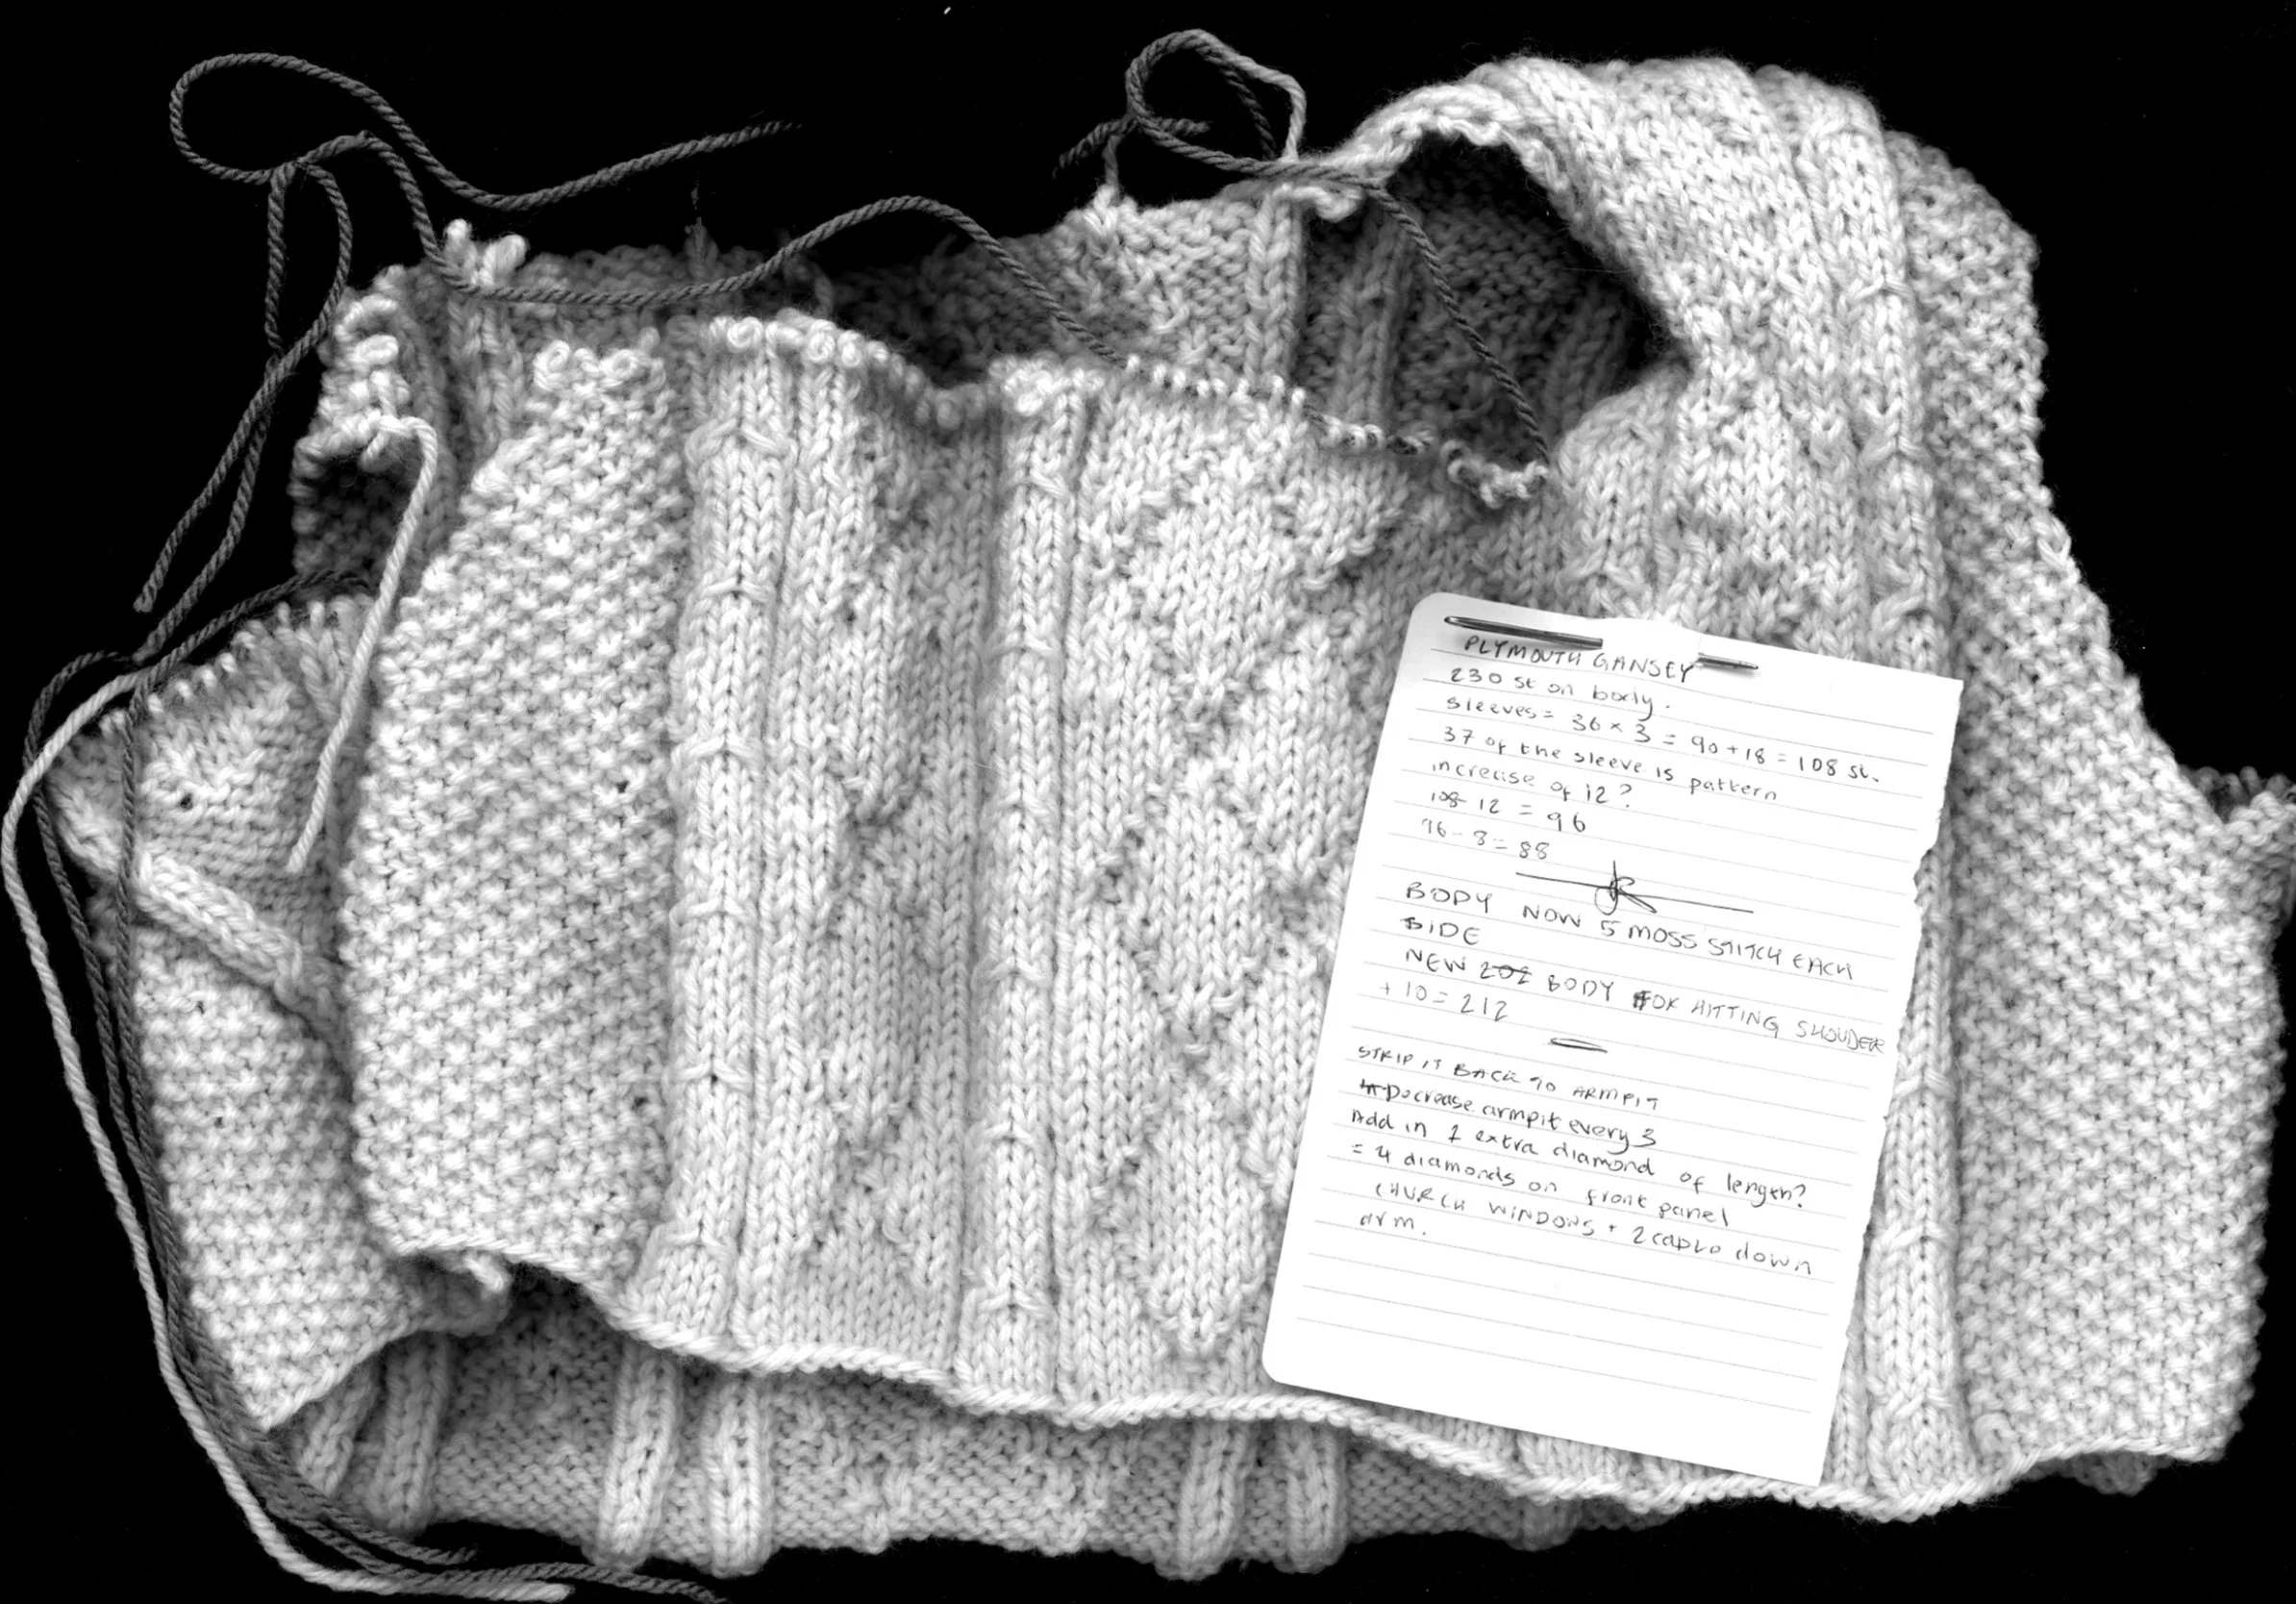 PLYMOUTH GANSEY
230 st on body.
sleeves = 36 × 3 = 90 + 18 = 108 st.
37 of the sleeve is pattern
increase of 12?
108 - 12 = 96
96 - 8 = 88
BODY NOW 5 MOSS STITCH EACH
SIDE
NEW 202 BODY FOR HITTING SHOUDER
+ 10 = 212
STRIP IT BACK TO ARMPIT
Decrease armpit every 3
Add in 1 extra diamond of length?
= 4 diamonds on front panel
CHURCH WINDOWS + 2 cable down
arm.